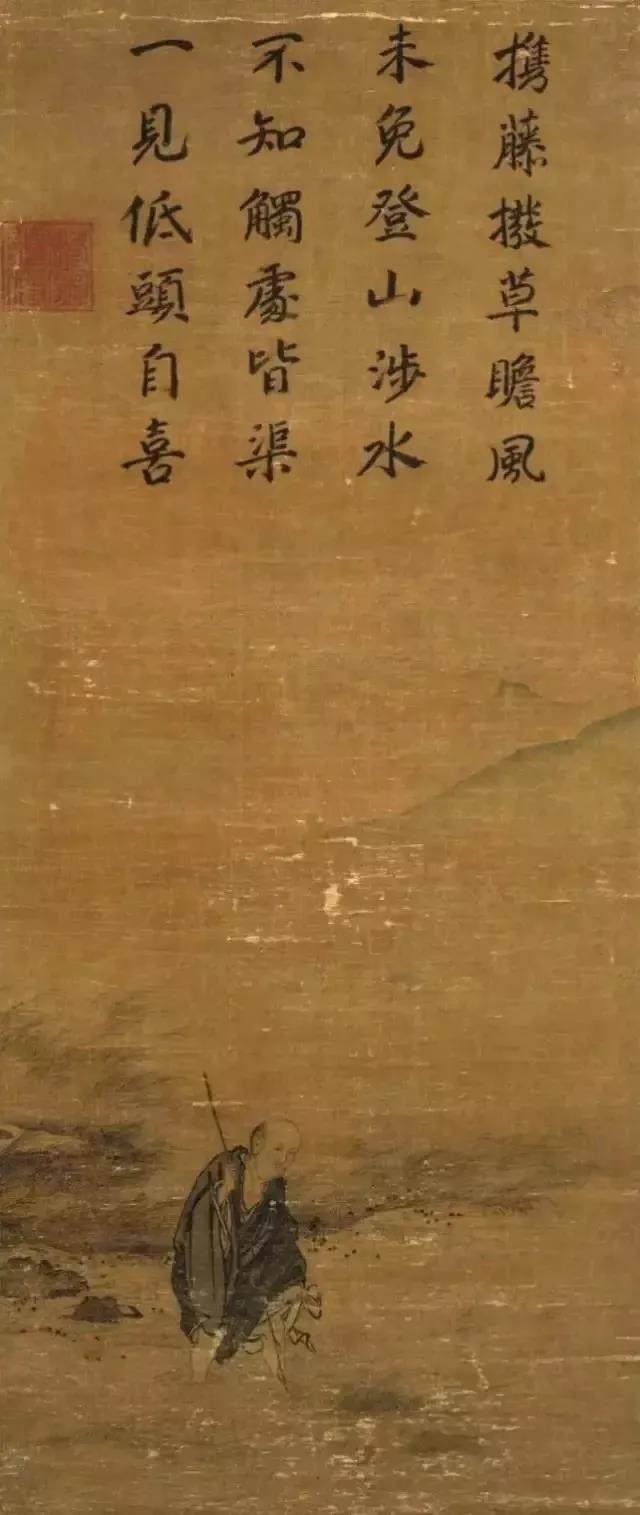 攜藤撥草瞻風
未免登山涉水
不知觸處皆渠
一見低頭自喜